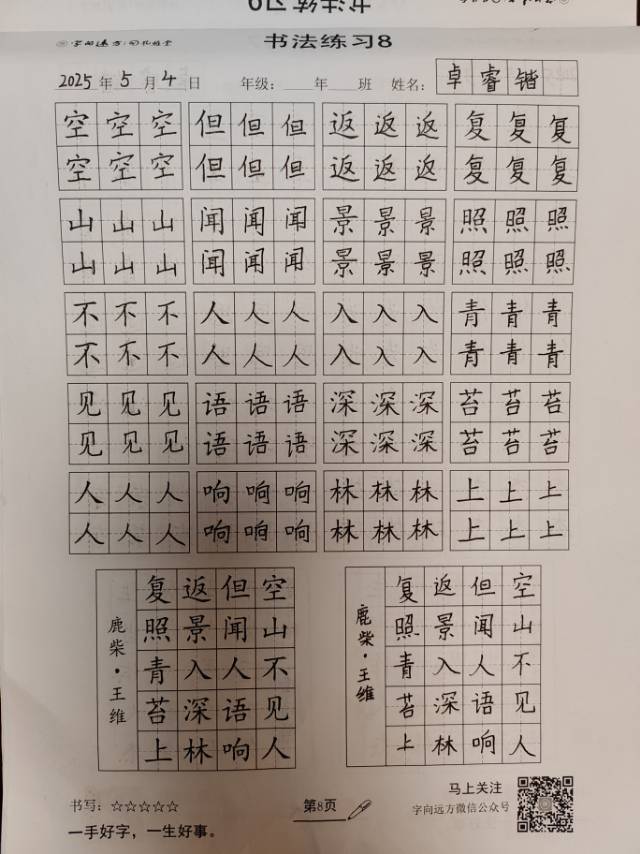 书法练习9
字向远方·司机课堂 书法练习8
2025年5月4日 年级：____年____班 姓名：卓睿锴
空空空 但但但 返返返 复复复
空空空 但但但 返返返 复复复
山山山 闻闻闻 景景景 照照照
山山山 闻闻闻 景景景 照照照
不不不 人人人 入入入 青青青
不不不 人人人 入入入 青青青
见见见 语语语 深深深 苔苔苔
见见见 语语语 深深深 苔苔苔
人人人 响响响 林林林 上上上
人人人 响响响 林林林 上上上
鹿柴·王维
空山不见人
但闻人语响
返景入深林
复照青苔上
鹿柴·王维
空山不见人
但闻人语响
返景入深林
复照青苔上
书写：☆☆☆☆☆
一手好字，一生好事。
第8页
马上关注
字向远方微信公众号